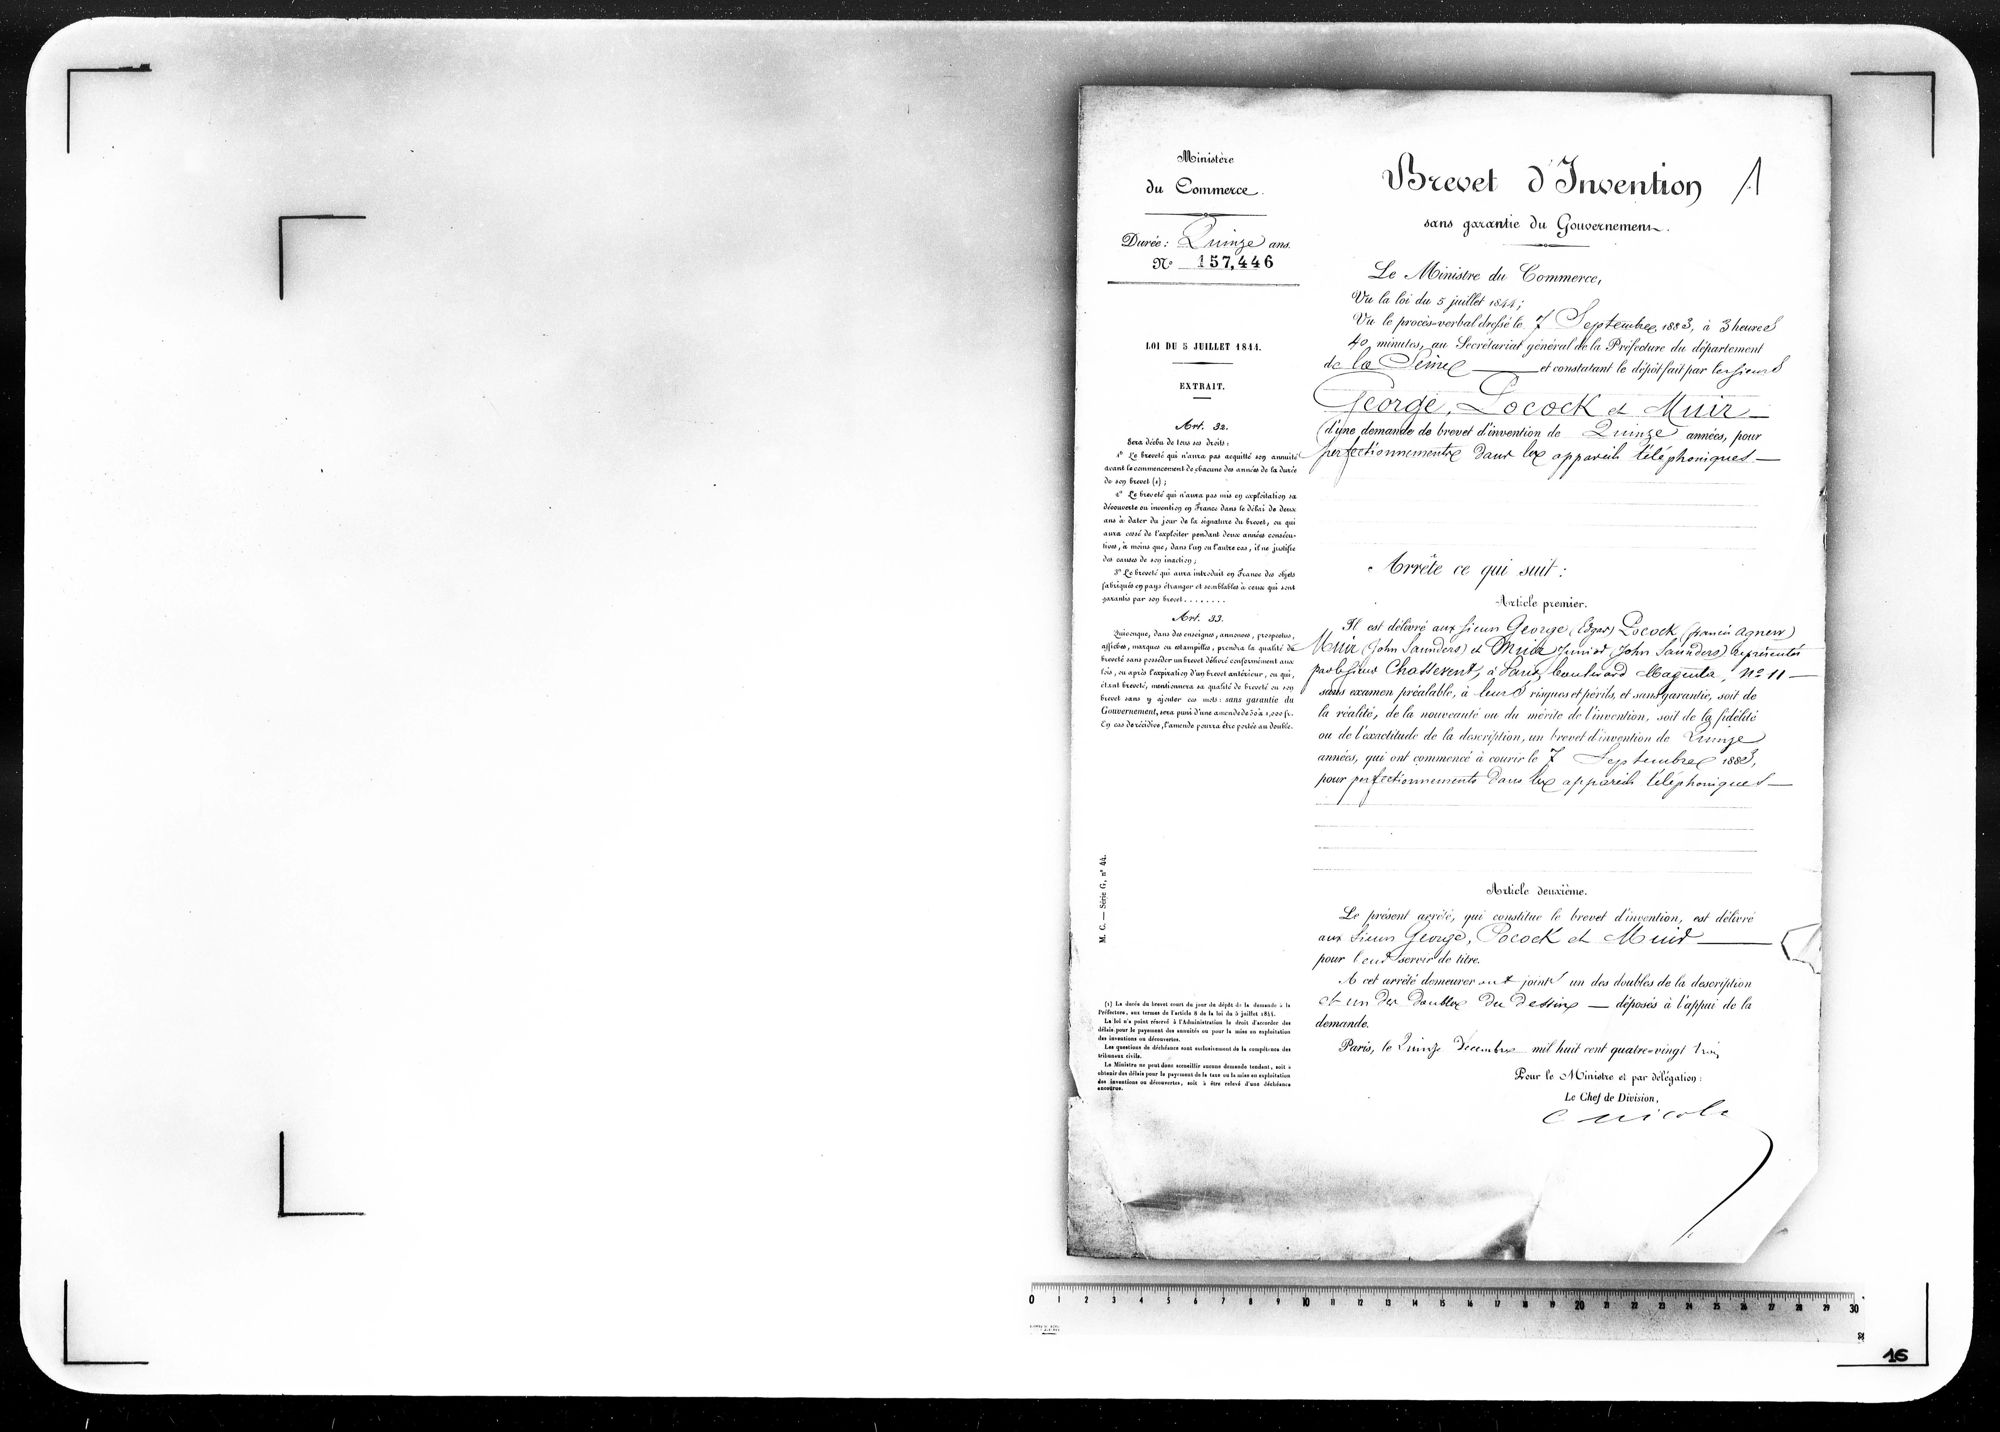 Ministère
du Commerce.
Durée: Quinze ans.
N° 157,446
LOI DU 5 JUILLET 1844.
EXTRAIT.
Art. 32.
Sera déchu de tous ses droits:
1° Le breveté qui n'aura pas acquitté son annuité
avant le commencement de chacune des années de la durée
de son brevet (1);
2° Le breveté qui n'aura pas mis en exploitation sa
découverte ou invention en France dans le délai de deux
ans à dater du jour de la signature du brevet, ou qui
aura cessé de l'exploiter pendant deux années consécu-
tives, à moins que, dans l'un ou l'autre cas, il ne justifie
des causes de son inaction;
3° Le breveté qui aura introduit en France des objets
fabriqués en pays étranger et semblables à ceux qui sont
garantis par son brevet........
Art. 33.
Quiconque, dans des enseignes, annonces, prospectus,
affiches, marques ou estampilles, prendra la qualité de
breveté sans posséder un brevet délivré conformément aux
lois, ou après l'expiration d'un brevet antérieur, ou qui,
étant breveté, mentionnera sa qualité de breveté ou son
brevet sans y ajouter ces mots: sans garantie du
Gouvernement, sera puni d'une amende de 50 à 1,000 fr.
En cas de récidive, l'amende pourra être portée au double.
M. C. — Série G, n° 44.
(1) La durée du brevet court du jour du dépôt de la demande à la
Préfecture, aux termes de l'article 8 de la loi du 5 juillet 1844.
La loi n'a point réservé à l'Administration le droit d'accorder des
délais pour le payement des annuités ou pour la mise en exploitation
des inventions ou découvertes.
Les questions de déchéance sont exclusivement de la compétence des
tribunaux civils.
Le Ministre ne peut donc accueillir aucune demande tendant, soit à
obtenir des délais pour le payement de la taxe ou la mise en exploitation
des inventions ou découvertes, soit à être relevé d'une déchéance
encourue.
Brevet d'Invention 1
sans garantie du Gouvernement.
Le Ministre du Commerce,
Vu la loi du 5 juillet 1844;
Vu le procès-verbal dressé le 7 Septembre 1883, à 3 heures
40 minutes, au Secrétariat général de la Préfecture du département
de la Seine et constatant le dépôt fait par les sieurs
George, Pocock et Muir
d'une demande de brevet d'invention de Quinze années, pour
perfectionnements dans les appareils téléphoniques
Arrête ce qui suit:
Article premier.
Il est délivré aux sieurs George (Edgar) Pocock (Francis Agnew)
Muir (John Saunders) et Muir Junior (John Saunders) représentés
par le sieur Chassevent, à Paris, boulevard Magenta, N° 11
sans examen préalable, à leurs risques et périls, et sans garantie, soit de
la réalité, de la nouveauté ou du mérite de l'invention, soit de la fidélité
ou de l'exactitude de la description, un brevet d'invention de Quinze
années, qui ont commencé à courir le 7 Septembre 1883,
pour perfectionnements dans les appareils téléphoniques
Article deuxième.
Le présent arrêté, qui constitue le brevet d'invention, est délivré
aux sieurs George, Pocock et Muir
pour leur servir de titre.
A cet arrêté demeureront joints un des doubles de la description
et un des doubles du dessins — déposés à l'appui de la
demande.
Paris, le Quinze Décembre mil huit cent quatre-vingt trois
Pour le Ministre et par délégation:
Le Chef de Division,
0 1 2 3 4 5 6 7 8 9 10 11 12 13 14 15 16 17 18 19 20 21 22 23 24 25 26 27 28 29 30
16